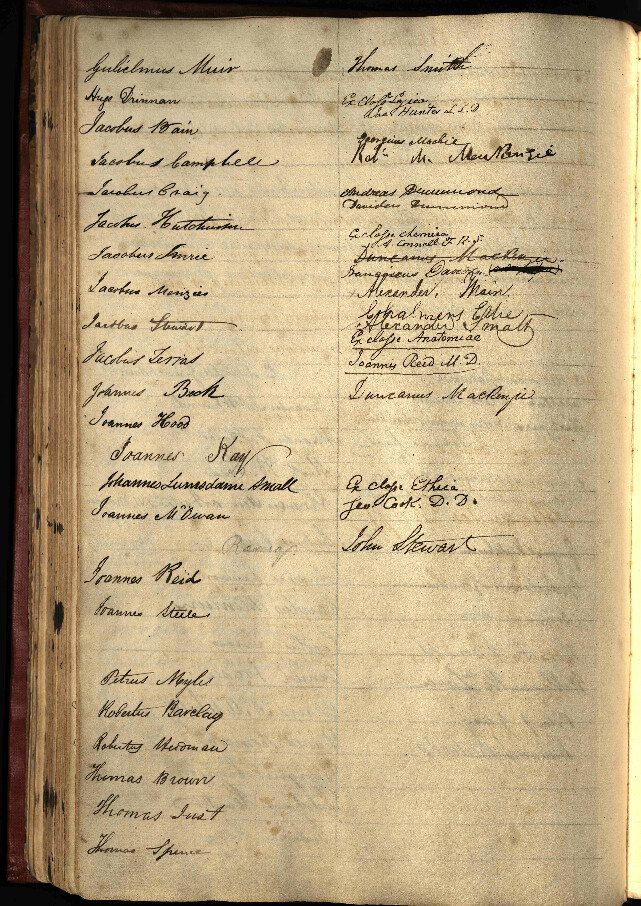 Gulielmus Muir
Hugo Drinnan
Jacobus Bain
Jacobus Campbell
Jacobus Craig
Jacobus Hutchison
Jacobus Imrie
Jacobus Menzies
Jacobus Stewart
Jacobus
Joannes Book
Joannes Hood
Joannes Kay
Johannes Lumsdaine Small
Joannes McOwan
Ramsay
Joannes Reid
Joannes Steele
Petrus Myles
Robertus Barclay
Robertus
Thomas Brown
Thomas Just
Thomas Spence
Thomas Smith
Ex Classe Logica
Hunter L.L.D
Georgius Mackie
Robt. M. MacKenzie
Andreas Drummond
Davidus Drummond
Ex classe chemica
A. Connell F.R.S.
Duncanus Mackenzie
Alexander Main
Alexander Smalt
Ex classe Anatomiae
Joannes Reid M.D.
Duncanus Mackenzie
Ex classe Ethica
Geo. Cook. D.D.
John Stewart